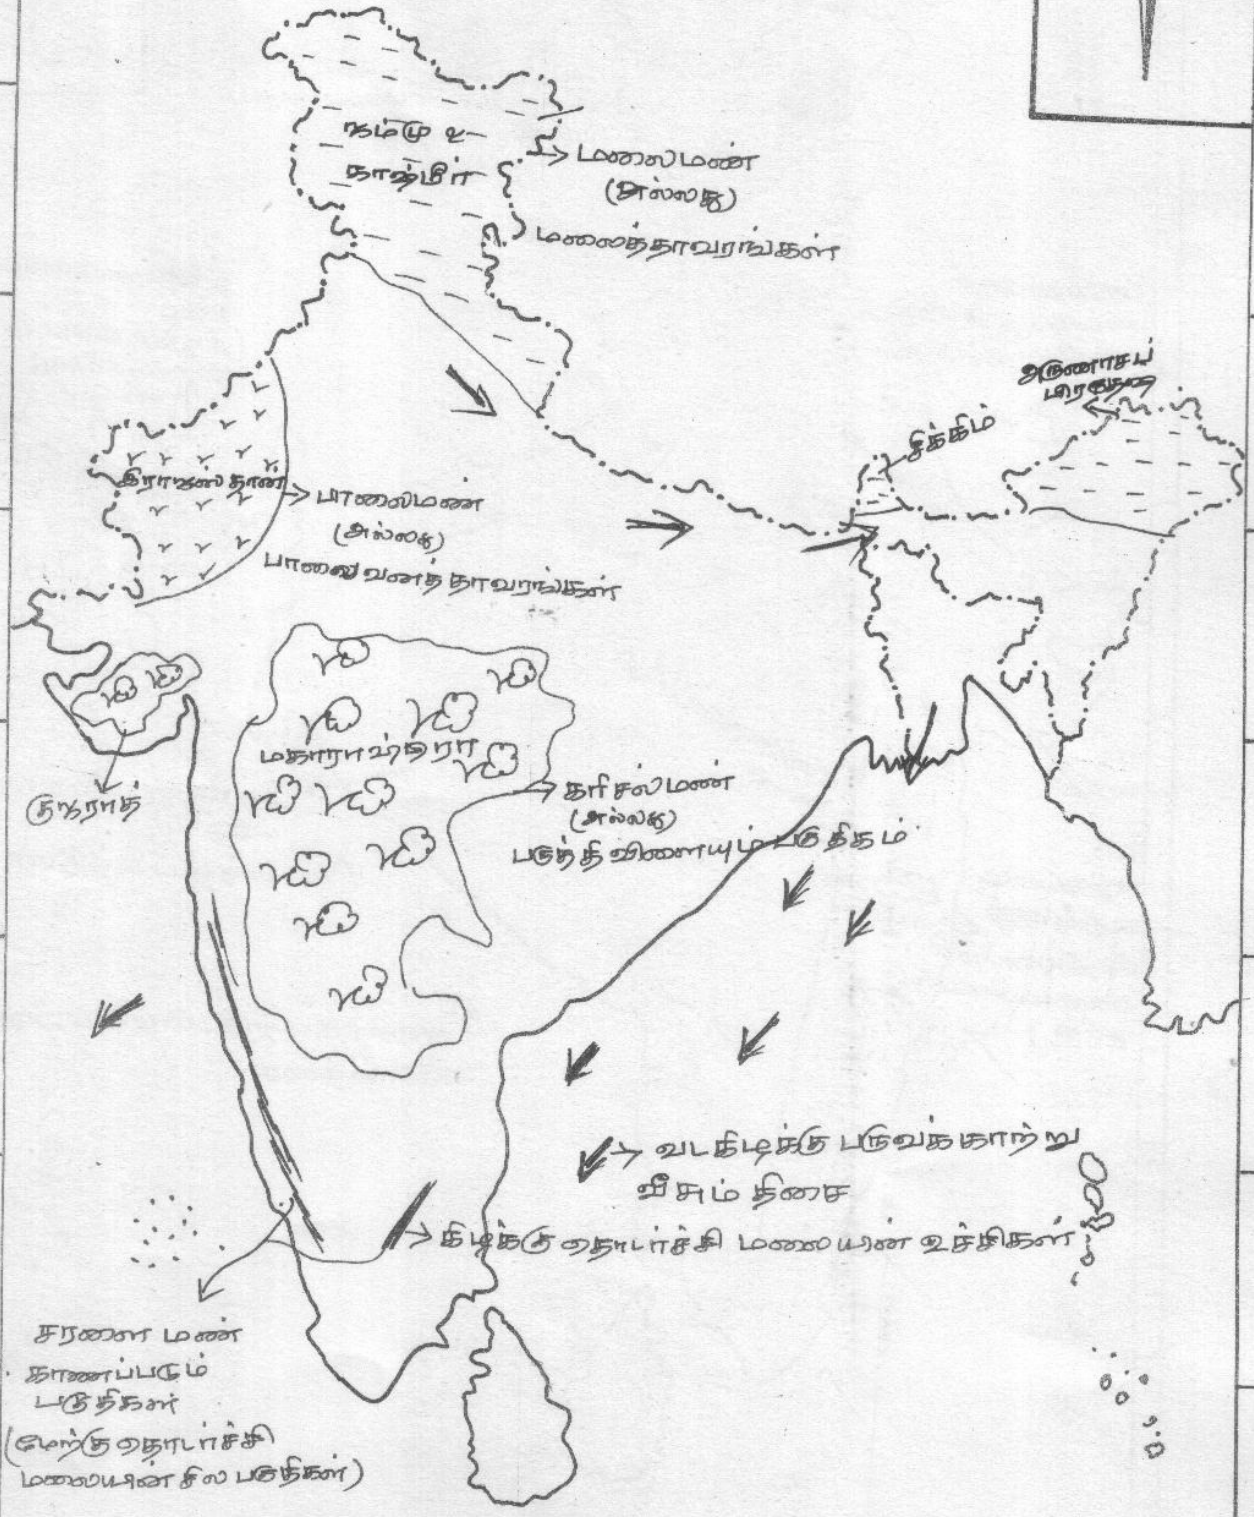 ஜம்மு &
காஷ்மீர்
மலைமண்
(அல்லது)
மலைத்தாவரங்கள்
அருணாசப்
பிரதேஷ்
சிக்கிம்
இராஜஸ்தான்
பாலைமண்
(அல்லது)
பாலைவனத் தாவரங்கள்
மகாராஷ்டிரா
குஜராத்
கரிசல்மண்
(அல்லது)
பருத்தி விளையும் பகுதிகம்
வடகிழக்கு பருவக்காற்று
வீசும் திசை
கிழக்கு தொடர்ச்சி மலையின் உச்சிகள்
சரளை மண்
காணப்படும்
பகுதிகள்
(மேற்கு தொடர்ச்சி
மலையின் சில பகுதிகள்)